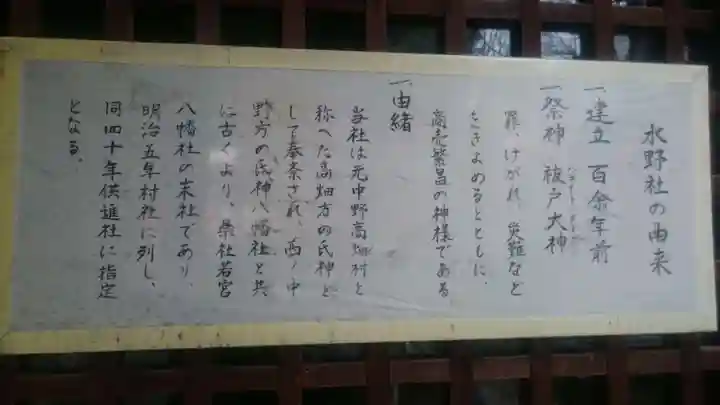 水野社の由来
一、建立 百余年前
一、祭神 祓戸大神
罪、けがれ、災難など
をきよめるとともに、
商売繁昌の神様である
一、由緒
当社は元中野高畑村と
称へた高畑方の氏神と
して奉祭され、西ノ中
野方の氏神八幡社と共
に古くより、県社若宮
八幡社の末社であり、
明治五年村社に列し、
同四十年供進社に指定
となる。